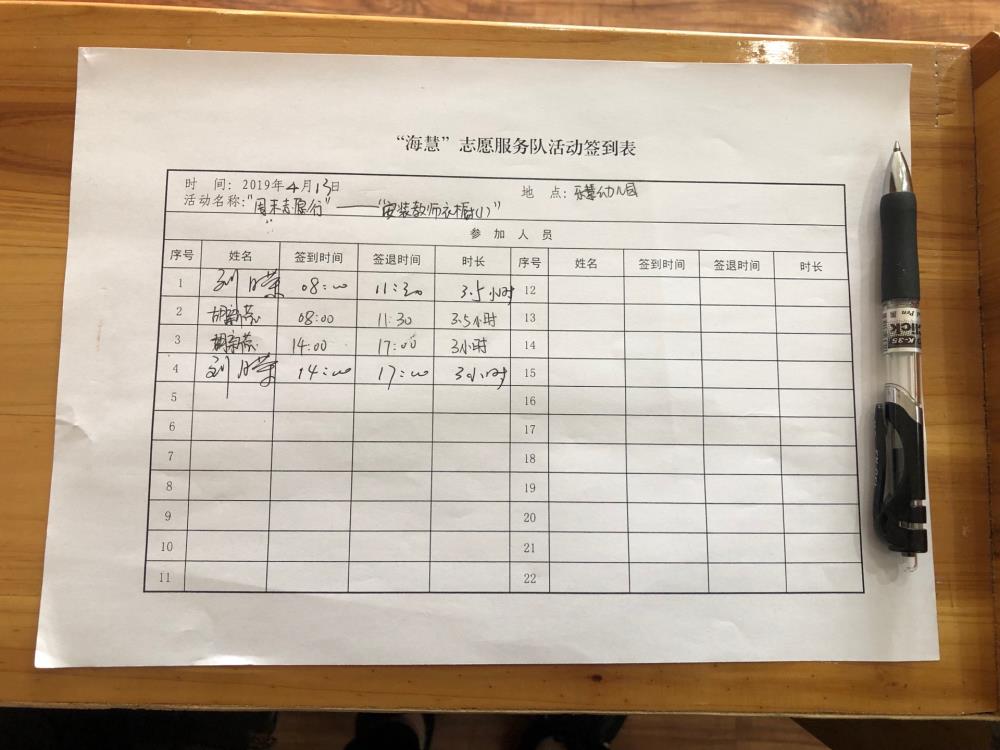 “海慧”志愿服务队活动签到表
时 间: 2019年4月13日
地 点: 乐慧幼儿园
活动名称: "周末志愿行"——"安装教师衣橱(1)"
参 加 人 员
序号 姓名 签到时间 签退时间 时长 序号 姓名 签到时间 签退时间 时长
1 08:00 11:30 3.5小时 12
2 08:00 11:30 3.5小时 13
3 14:00 17:00 3小时 14
4 14:00 17:00 3小时 15
5 16
6 17
7 18
8 19
9 20
10 21
11 22
K-35